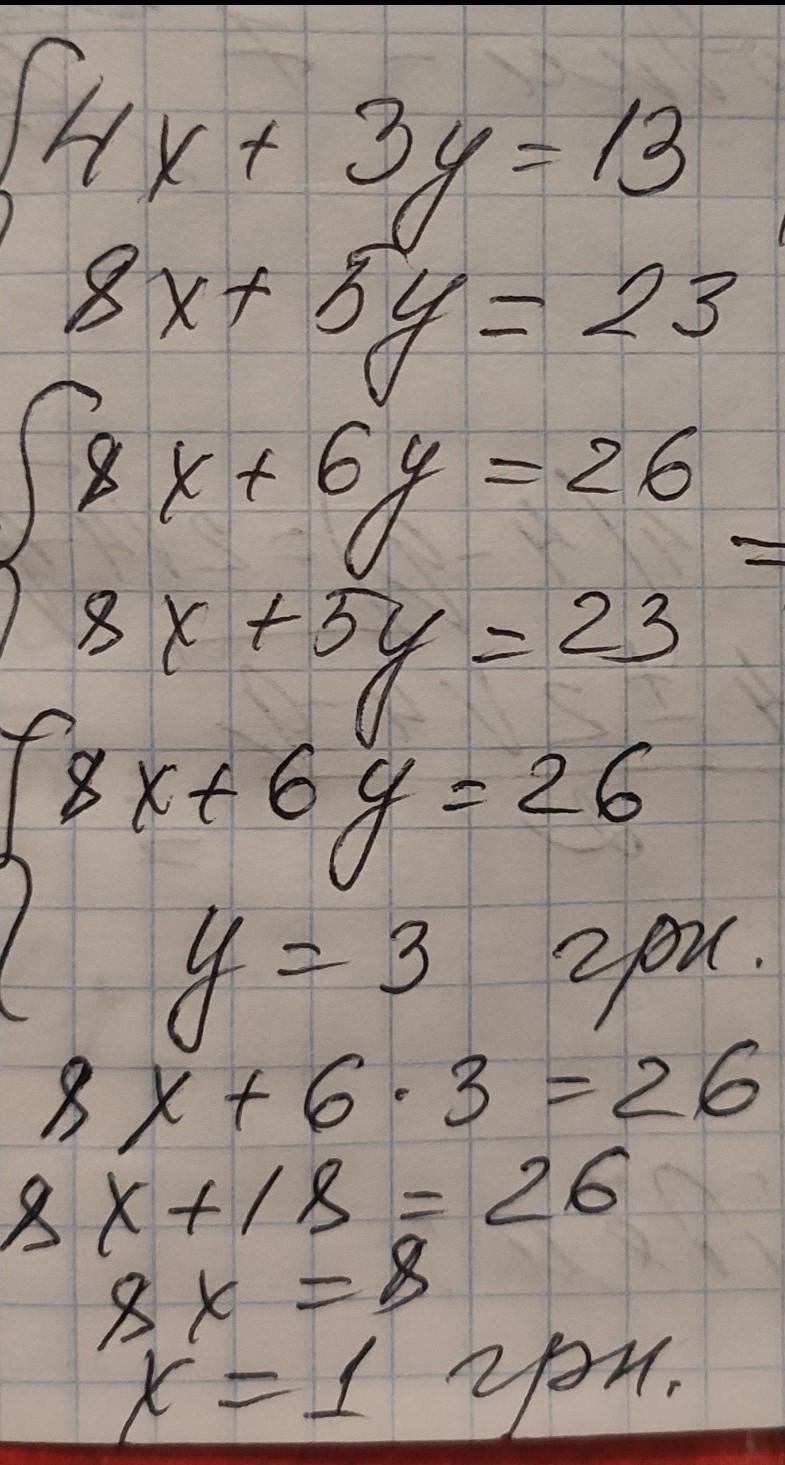 4x + 3y = 13
8x + 5y = 23
8x + 6y = 26
8x + 5y = 23
=
8x + 6y = 26
y = 3 грн.
8x + 6 · 3 = 26
8x + 18 = 26
8x = 8
x = 1 грн.